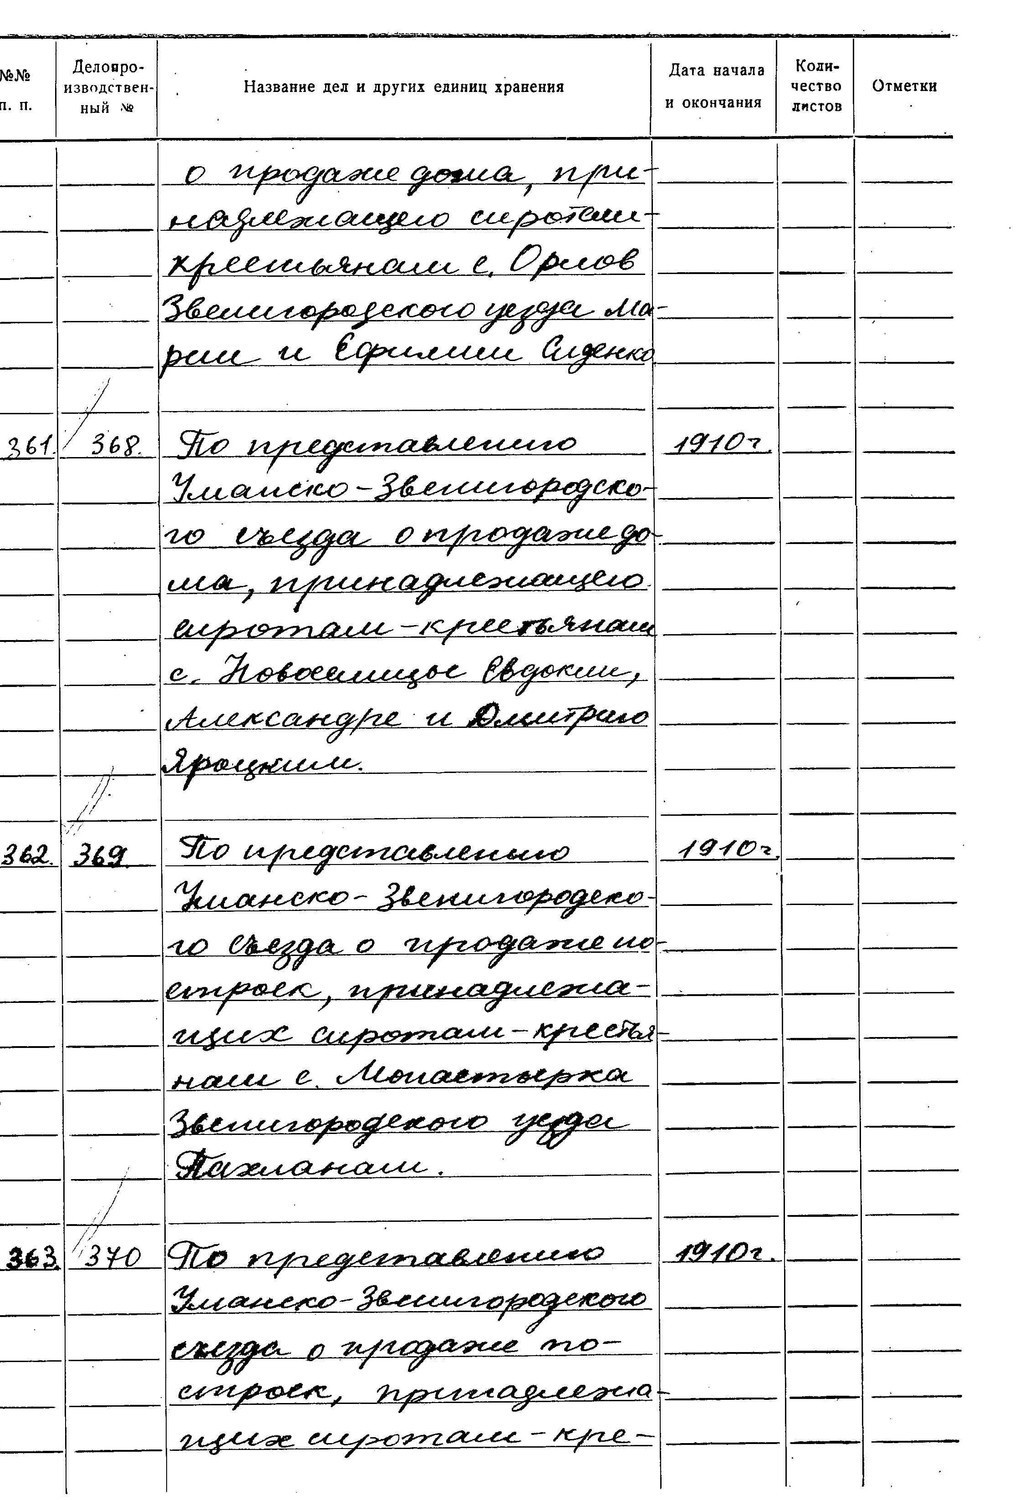 №№ п. п. Делопроизводственный № Название дел и других единиц хранения Дата начала и окончания Количество листов Отметки
о продаже дома, при-
надлежащего сиротам-
крестьянам с. Орлов
Звенигородского уезда Ма-
рии и Ефимии Сиденко
361. 368. По представлению 1910 г.
Уманско-Звенигородско-
го съезда о продаже до-
ма, принадлежащего
сиротам-крестьянам
с. Новоселицы Евдокии,
Александре и Дмитрию
Яроцким.
362. 369. По представлению 1910 г.
Уманско-Звенигородско-
го съезда о продаже по-
строек, принадлежа-
щих сиротам-крестья-
нам с. Монастырка
Звенигородского уезда
Пахланам.
363. 370 По представлению 1910 г.
Уманско-Звенигородского
съезда о продаже по-
строек, принадлежа-
щих сиротам-кре-